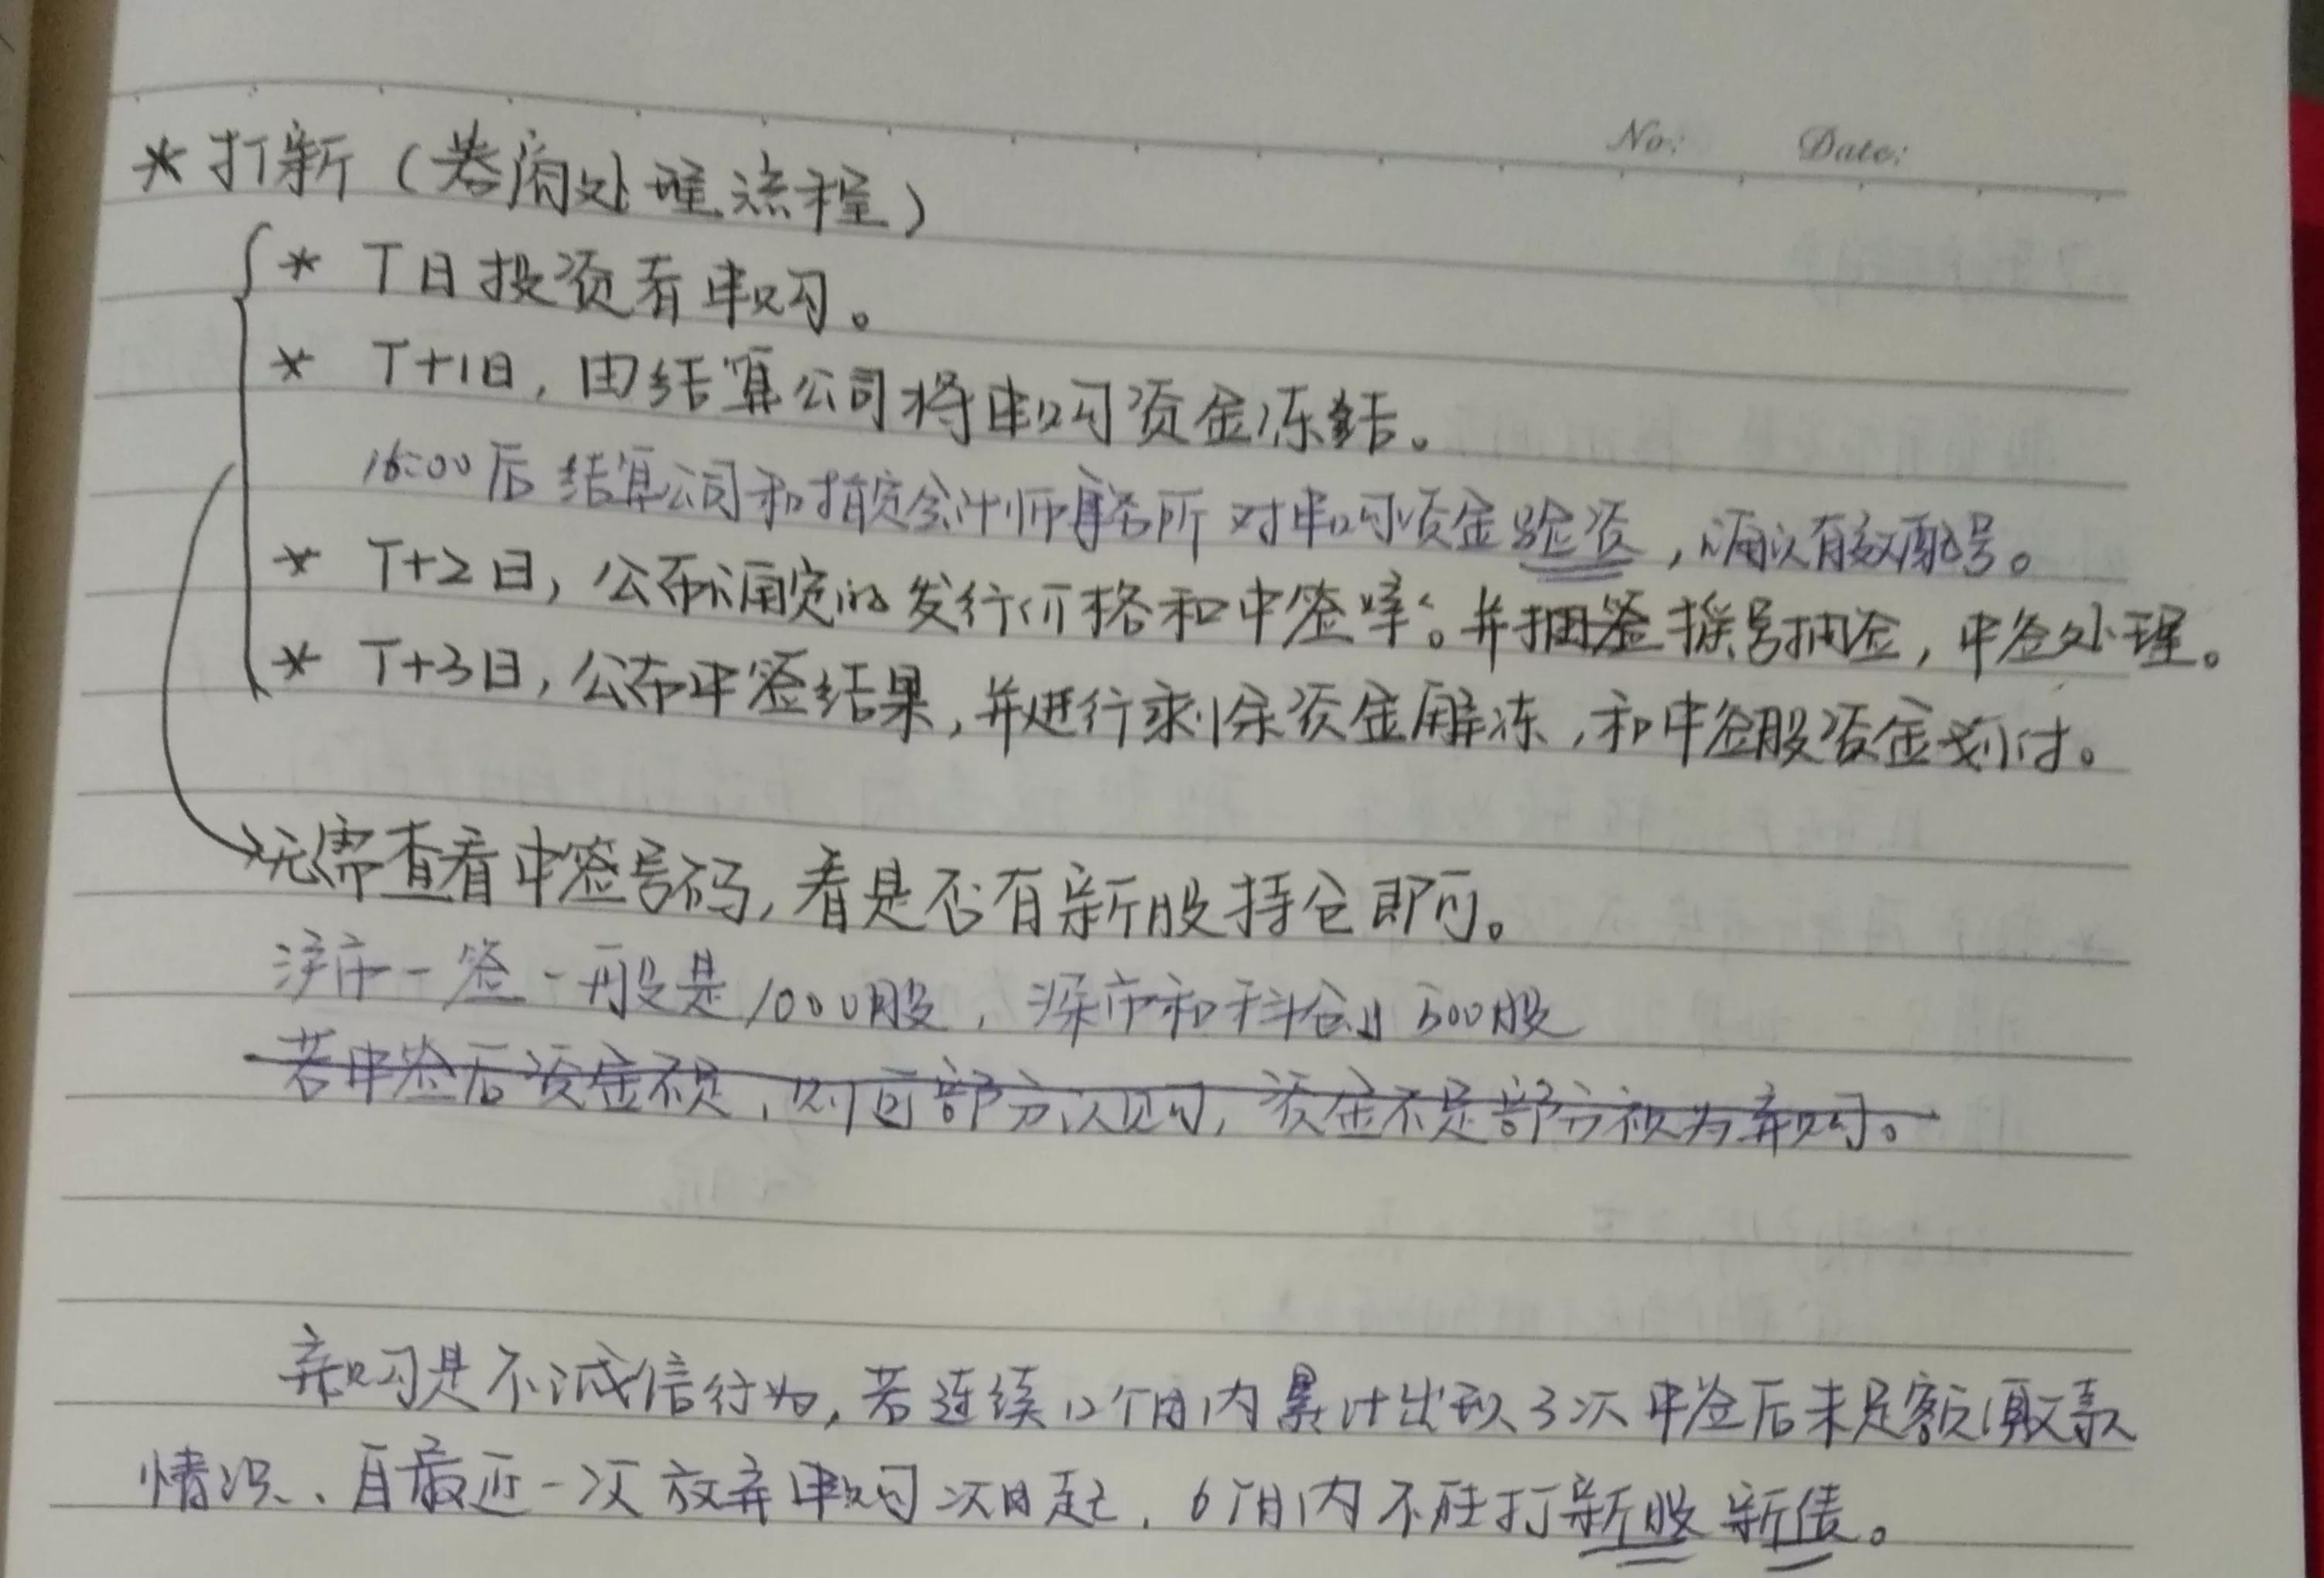 No: Date:
* 打新（券商处理流程）
* T日投资者申购。
* T+1日，由结算公司将申购资金冻结。
16:00后结算公司和指定会计师事务所对申购资金验资，确认有效配号。
* T+2日，公布确定的发行价格和中签率。并抽签摇号抽签，中签处理。
* T+3日，公布中签结果，并进行剩余资金解冻，和中签股资金划付。
无需查看中签号码，看是否有新股持仓即可。
沪市一签一般是1000股，深市和科创 500股
若中签后资金不足，则可部分认购，资金不足部分视为弃购。
弃购是不诚信行为，若连续12个月内累计出现3次中签后未足额缴款
情况、自最近一次放弃申购次日起，6个月内不能打新股新债。